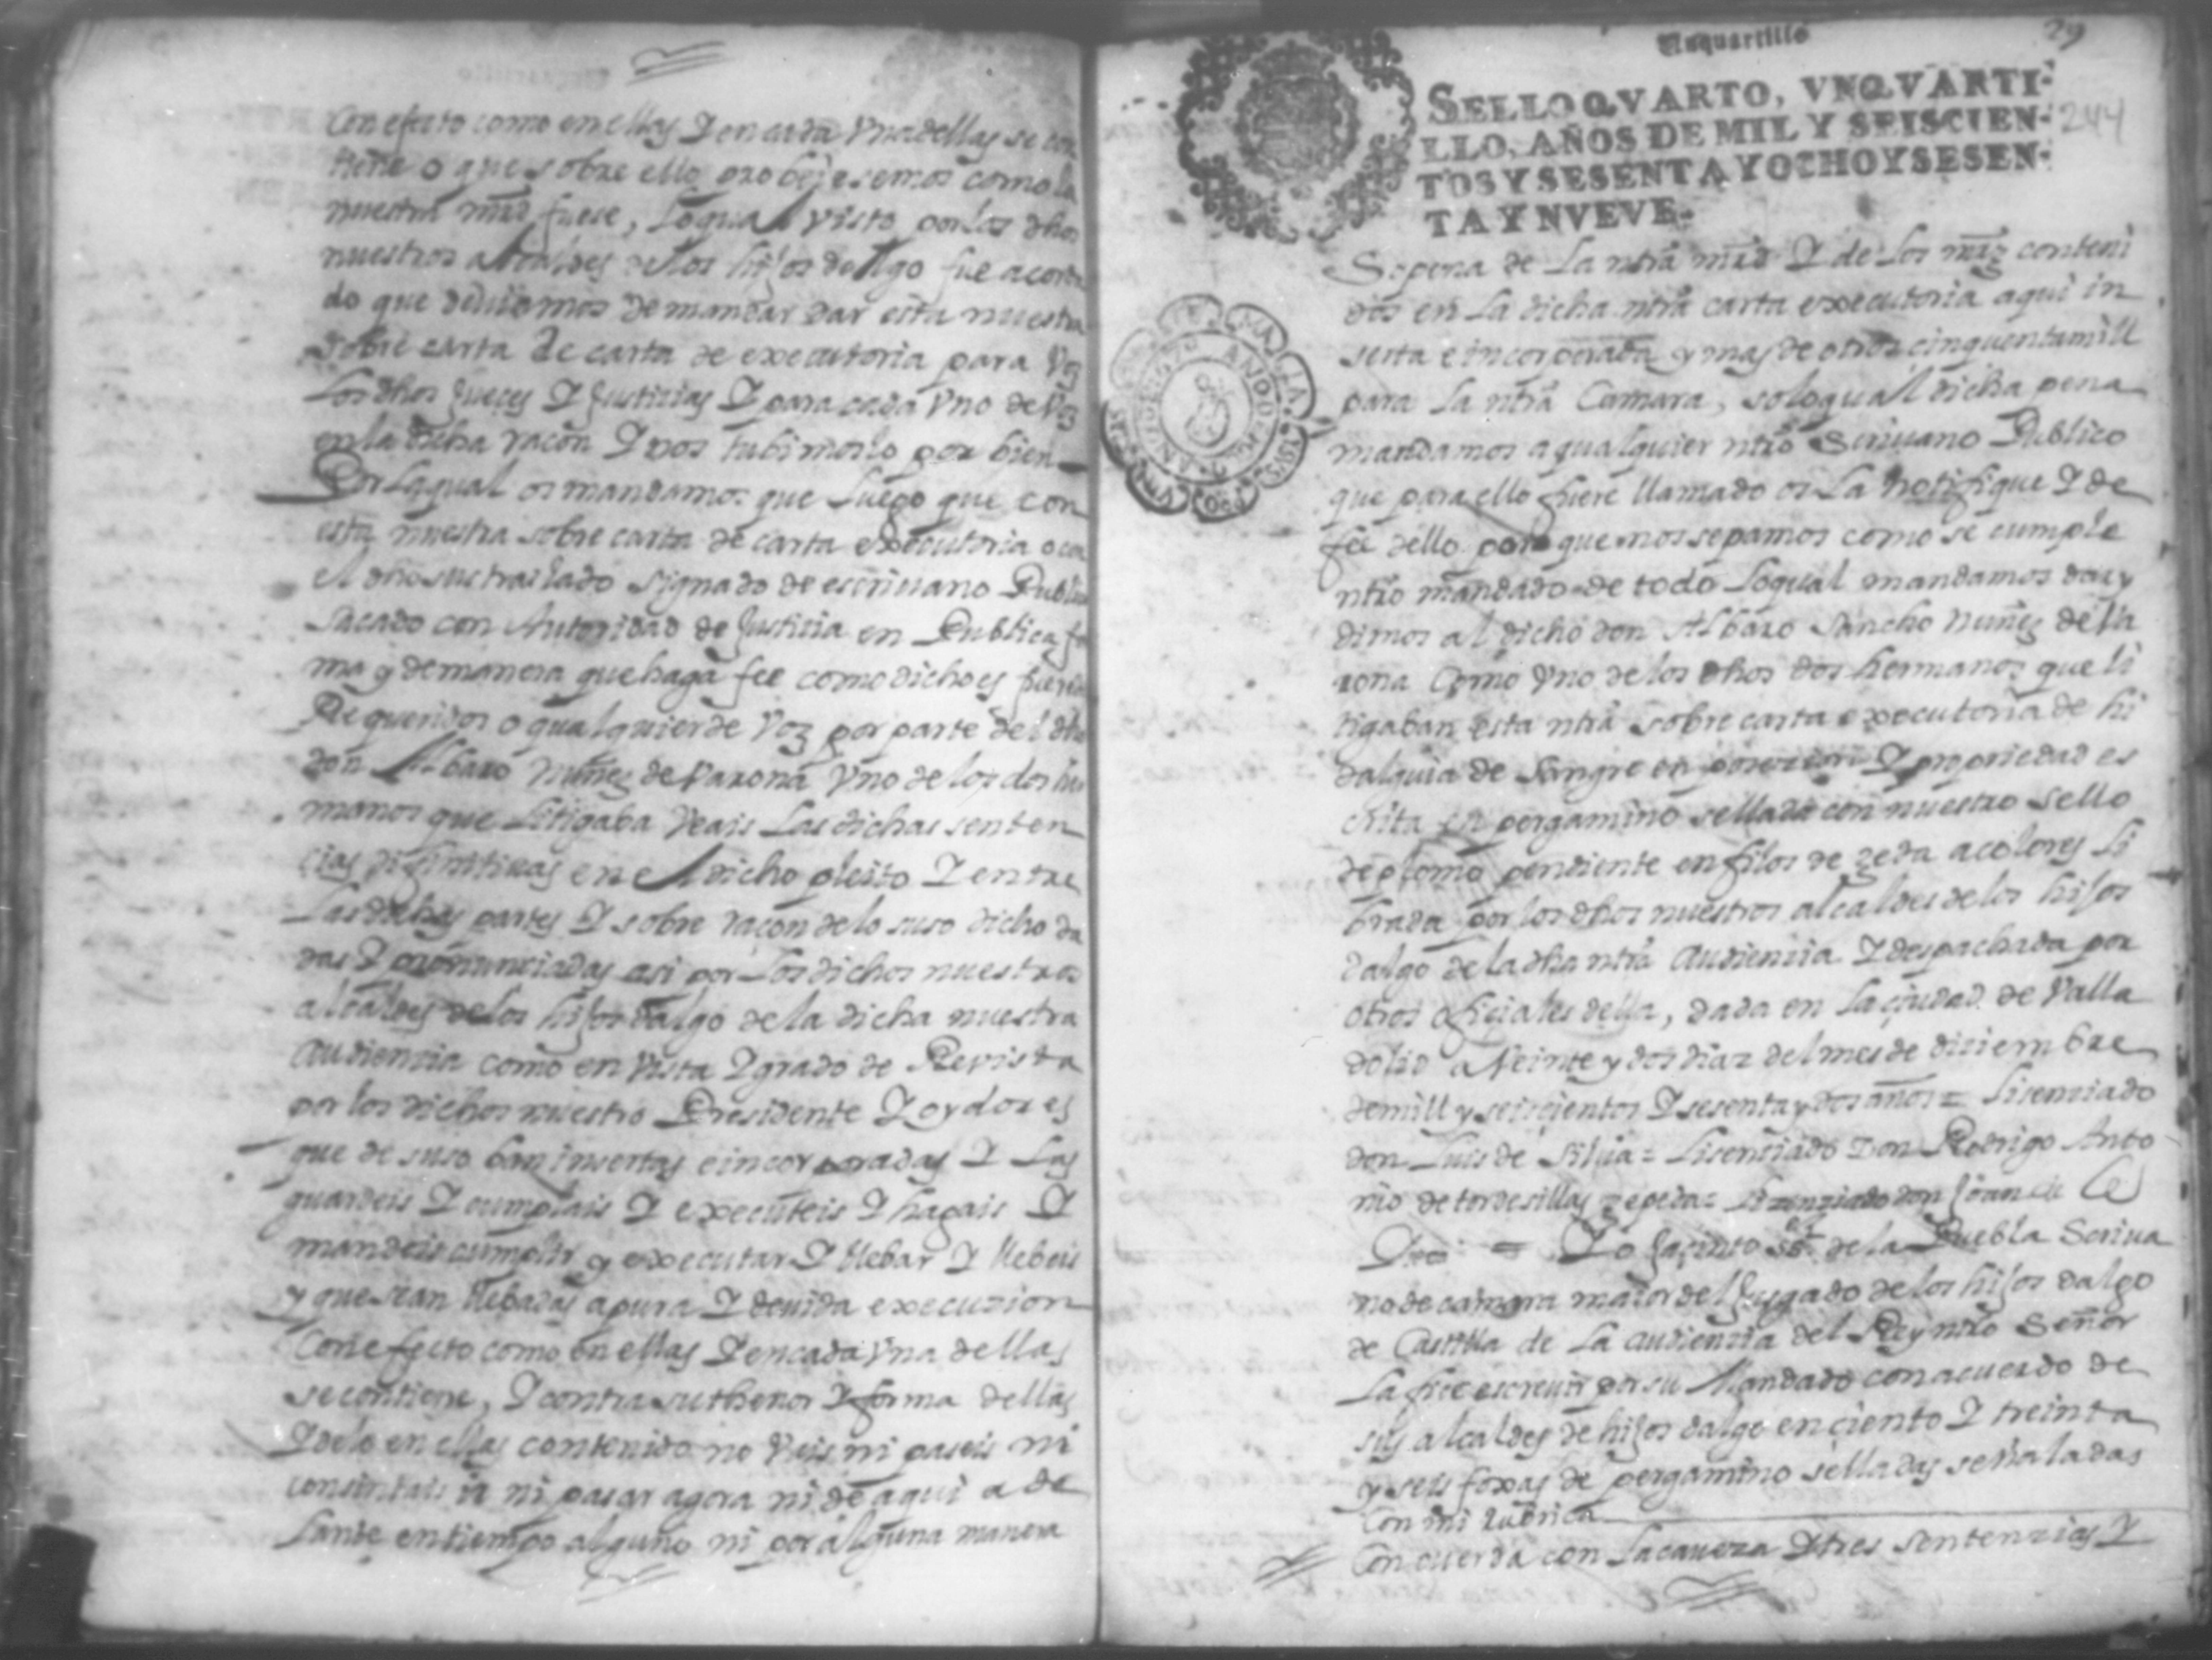 Con efecto como en ellas Y en cada Vna dellas se con
tiene o que sobre ello probeiesemos como la
nuestra mrd fuese, Loqual Visto por los dhos
nuestros alcaldes de los hijos dalgo fue acorda
do que deuiamos de mandar dar esta nuestra
sobre carta de carta de executoria para Vos
Los dhos Jueçes Y Justicias Y para cada Vno de Vos
en la dicha raçon Y nos tubimoslo por bien
Por Laqual os mandamos que Luego que con
esta nuestra sobre carta de carta executoria o con
el dho su traslado signado de escriuano Publico
sacado con Autoridad de Justicia en Publica for
ma y de manera que haga fee como dicho es fuereis
Requeridos o qualquier de Vos por parte del dho
don Albaro nuñez de Varona Vno de los dos her
manos que Litigaba Veais Las dichas senten
cias difinitiuas en el dicho pleito Y entre
Las dichas partes Y sobre raçon de lo suso dicho da
das Y pronunciadas asi por Los dichos nuestros
alcaldes de los hijos dalgo de la dicha nuestra
Audiencia como en Vista Y grado de Revista
por los dichos nuestro Presidente Y oydores
que de suso ban insertas e incorporadas Y Las
guardeis Y cumplais Y executeis Y hagais Y
mandeis cumplir y executar Y llebar Y llebeis
y que sean llebadas a pura Y deuida execucion
Con efecto como en ellas Y en cada Vna dellas
se contiene, Y contra su thenor Y forma dellas
Y de lo en ellas contenido no Vais ni paseis ni
consintais ir ni pasar agora ni de aqui a de
Lante en tiempo alguno ni por alguna manera
Vnquartillo
29
244
SELLO QVARTO, VN QVARTI-
LLO, AÑOS DE MIL Y SEISCIEN-
TOS Y SESENTA Y OCHO Y SESEN-
TA Y NVEVE.
So pena de La ntra mrd Y de Los mrs conteni
dos en La dicha ntra carta executoria aqui in
serta e incorporada y mas de otros cinquenta mill
para La ntra Camara, so loqual dicha pena
mandamos a qualquier ntro Scriuano Publico
que para ello fuere llamado os La notifique Y de
fee dello porque nos sepamos como se cumple
ntro mandado de todo Loqual mandamos dar y
dimos al dicho don Albaro Sancho nuñez de Va
rona Como Vno de los dhos dos hermanos que li
tigaban esta ntra sobre carta executoria de hi
dalguia de Sangre en posession Y propriedad es
crita en pergamino sellada con nuestro sello
de plomo pendiente en filos de zeda a colores Li
brada por los dhos nuestros alcaldes de los hijos
dalgo de la dha ntra Audiencia Y despachada por
otros oficiales della, dada en La çiudad de Valla
dolid a Veinte y dos dias del mes de diciembre
de mill y seiscientos Y sesenta y dos años = Licenciado
don Luis de Silua = Licenciado Don Rodrigo Anto
nio de tordesillas zepeda = Licenciado don Joan de
= Yo Jaçinto de la Puebla Scriua
no de camara maior del Juzgado de los hijos dalgo
de Castilla de La audiencia del Rey ntro Señor
La fice escreuir por su Mandado con acuerdo de
sus alcaldes de hijos dalgo en ciento Y treinta
y seis foxas de pergamino selladas señaladas
Con mi rubrica
Concuerda con La caueza Y tres sentencias Y